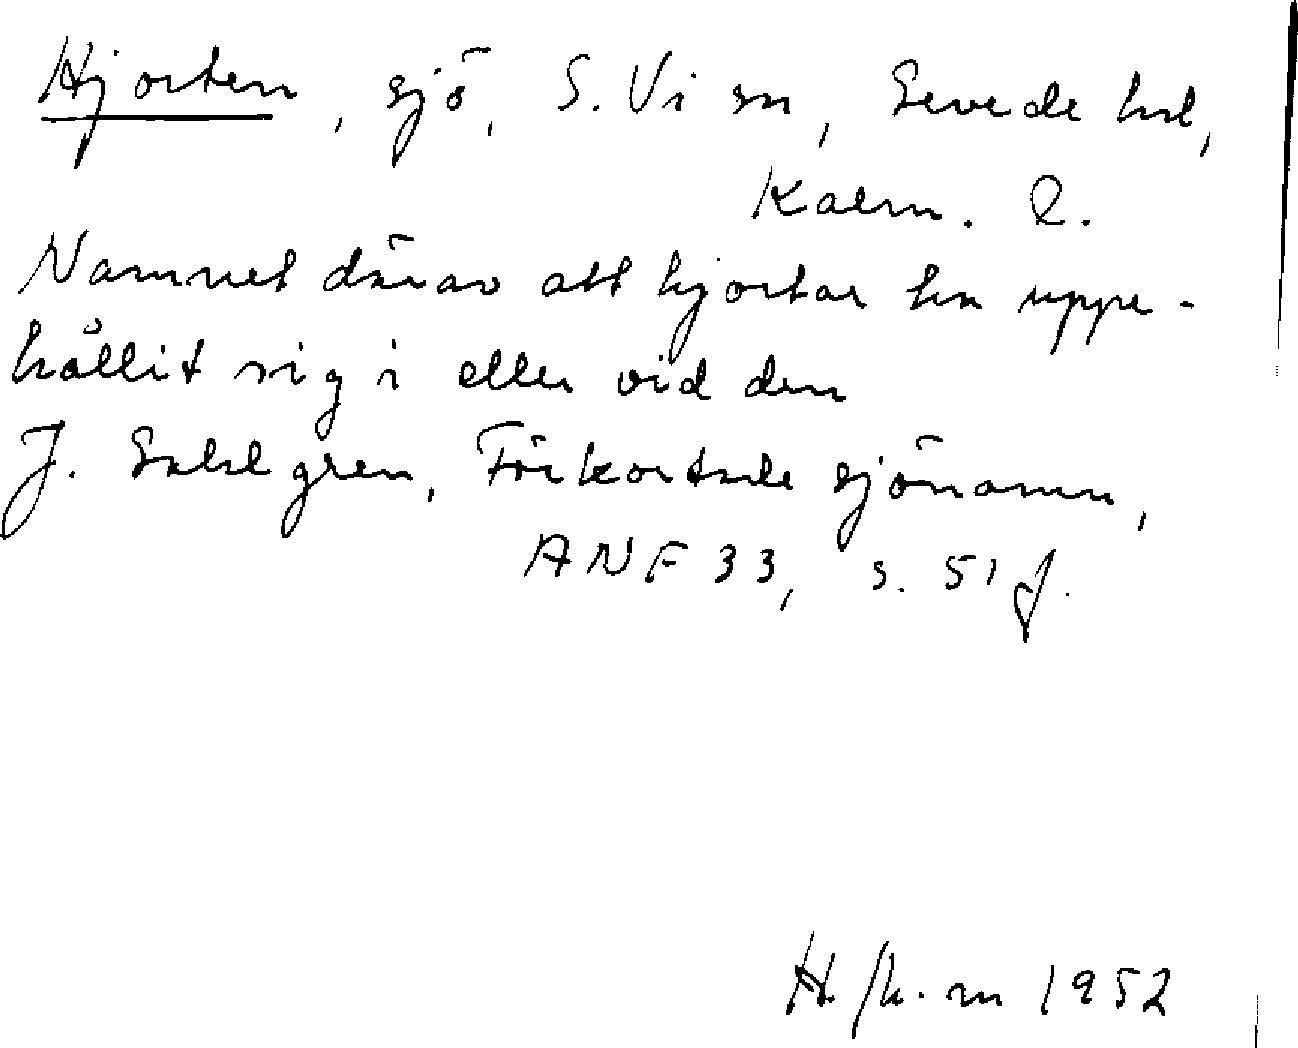 Hjorten, sjö, S. Vi sn, Sevede hd,
Kalm. l.
Namnet därav att hjortar ha uppe-
hållit sig i eller vid den
J. Sahlgren, Förkortade sjönamn,
ANF 33, s. 51 f.
1952